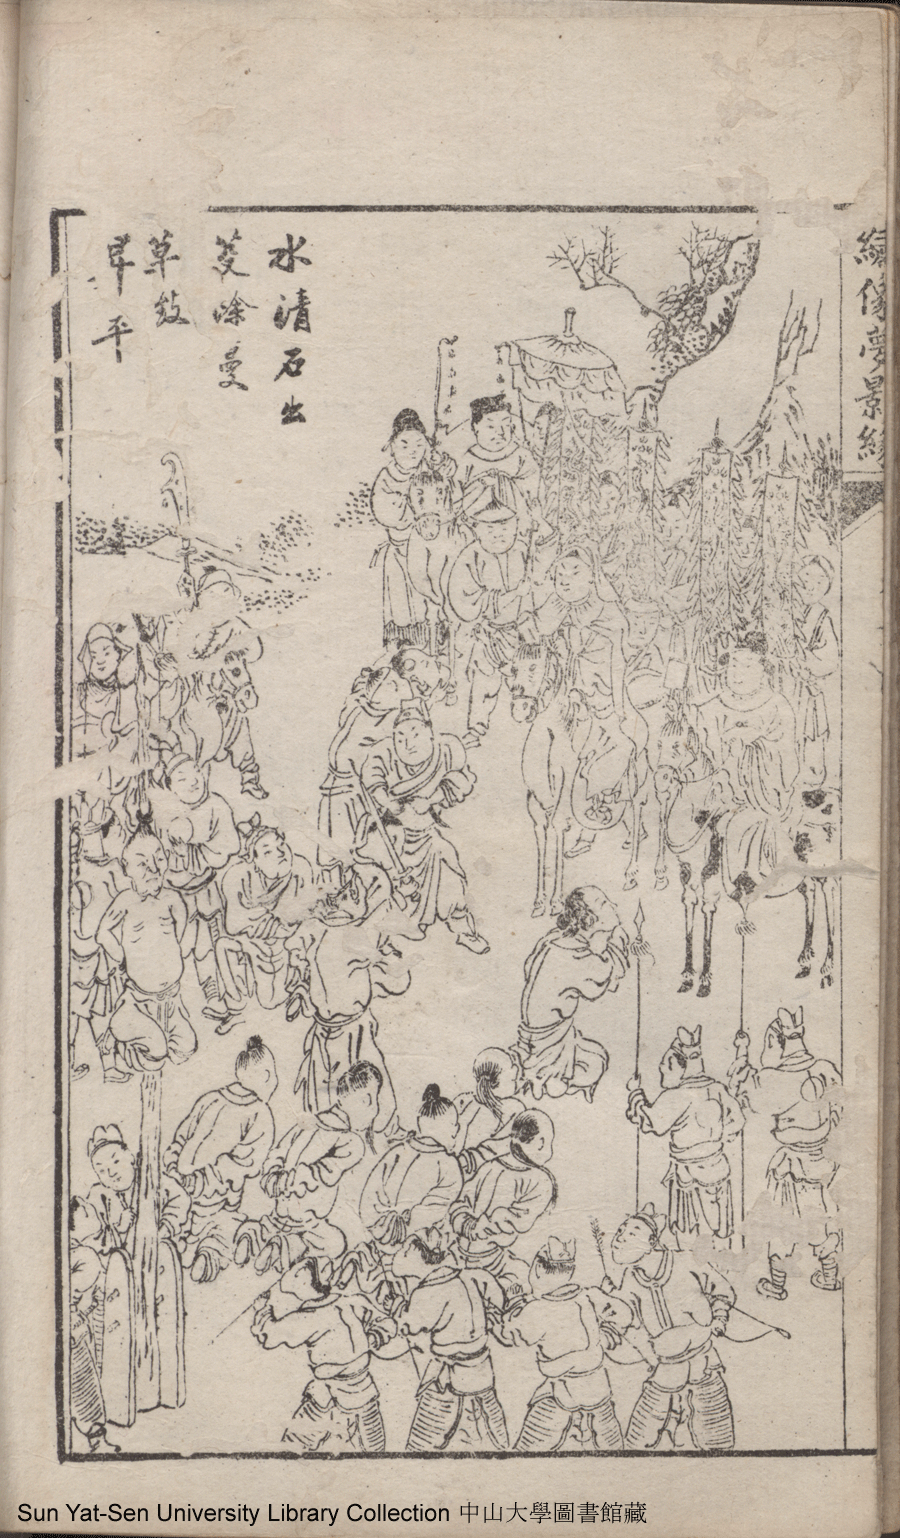 繡像夢景緣
水清石出
芟除曼
草致
昇平
Sun Yat-Sen University Library Collection 中山大學圖書館藏